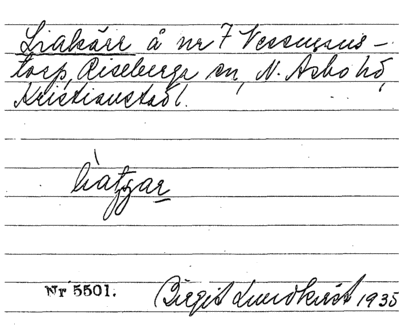 Liakärr å nr 7 Vessmans-
torp, Riseberga sn, N. Åsbo hd,
Kristianstad l.
Nr 5501. Birgit Lundkvist 1935